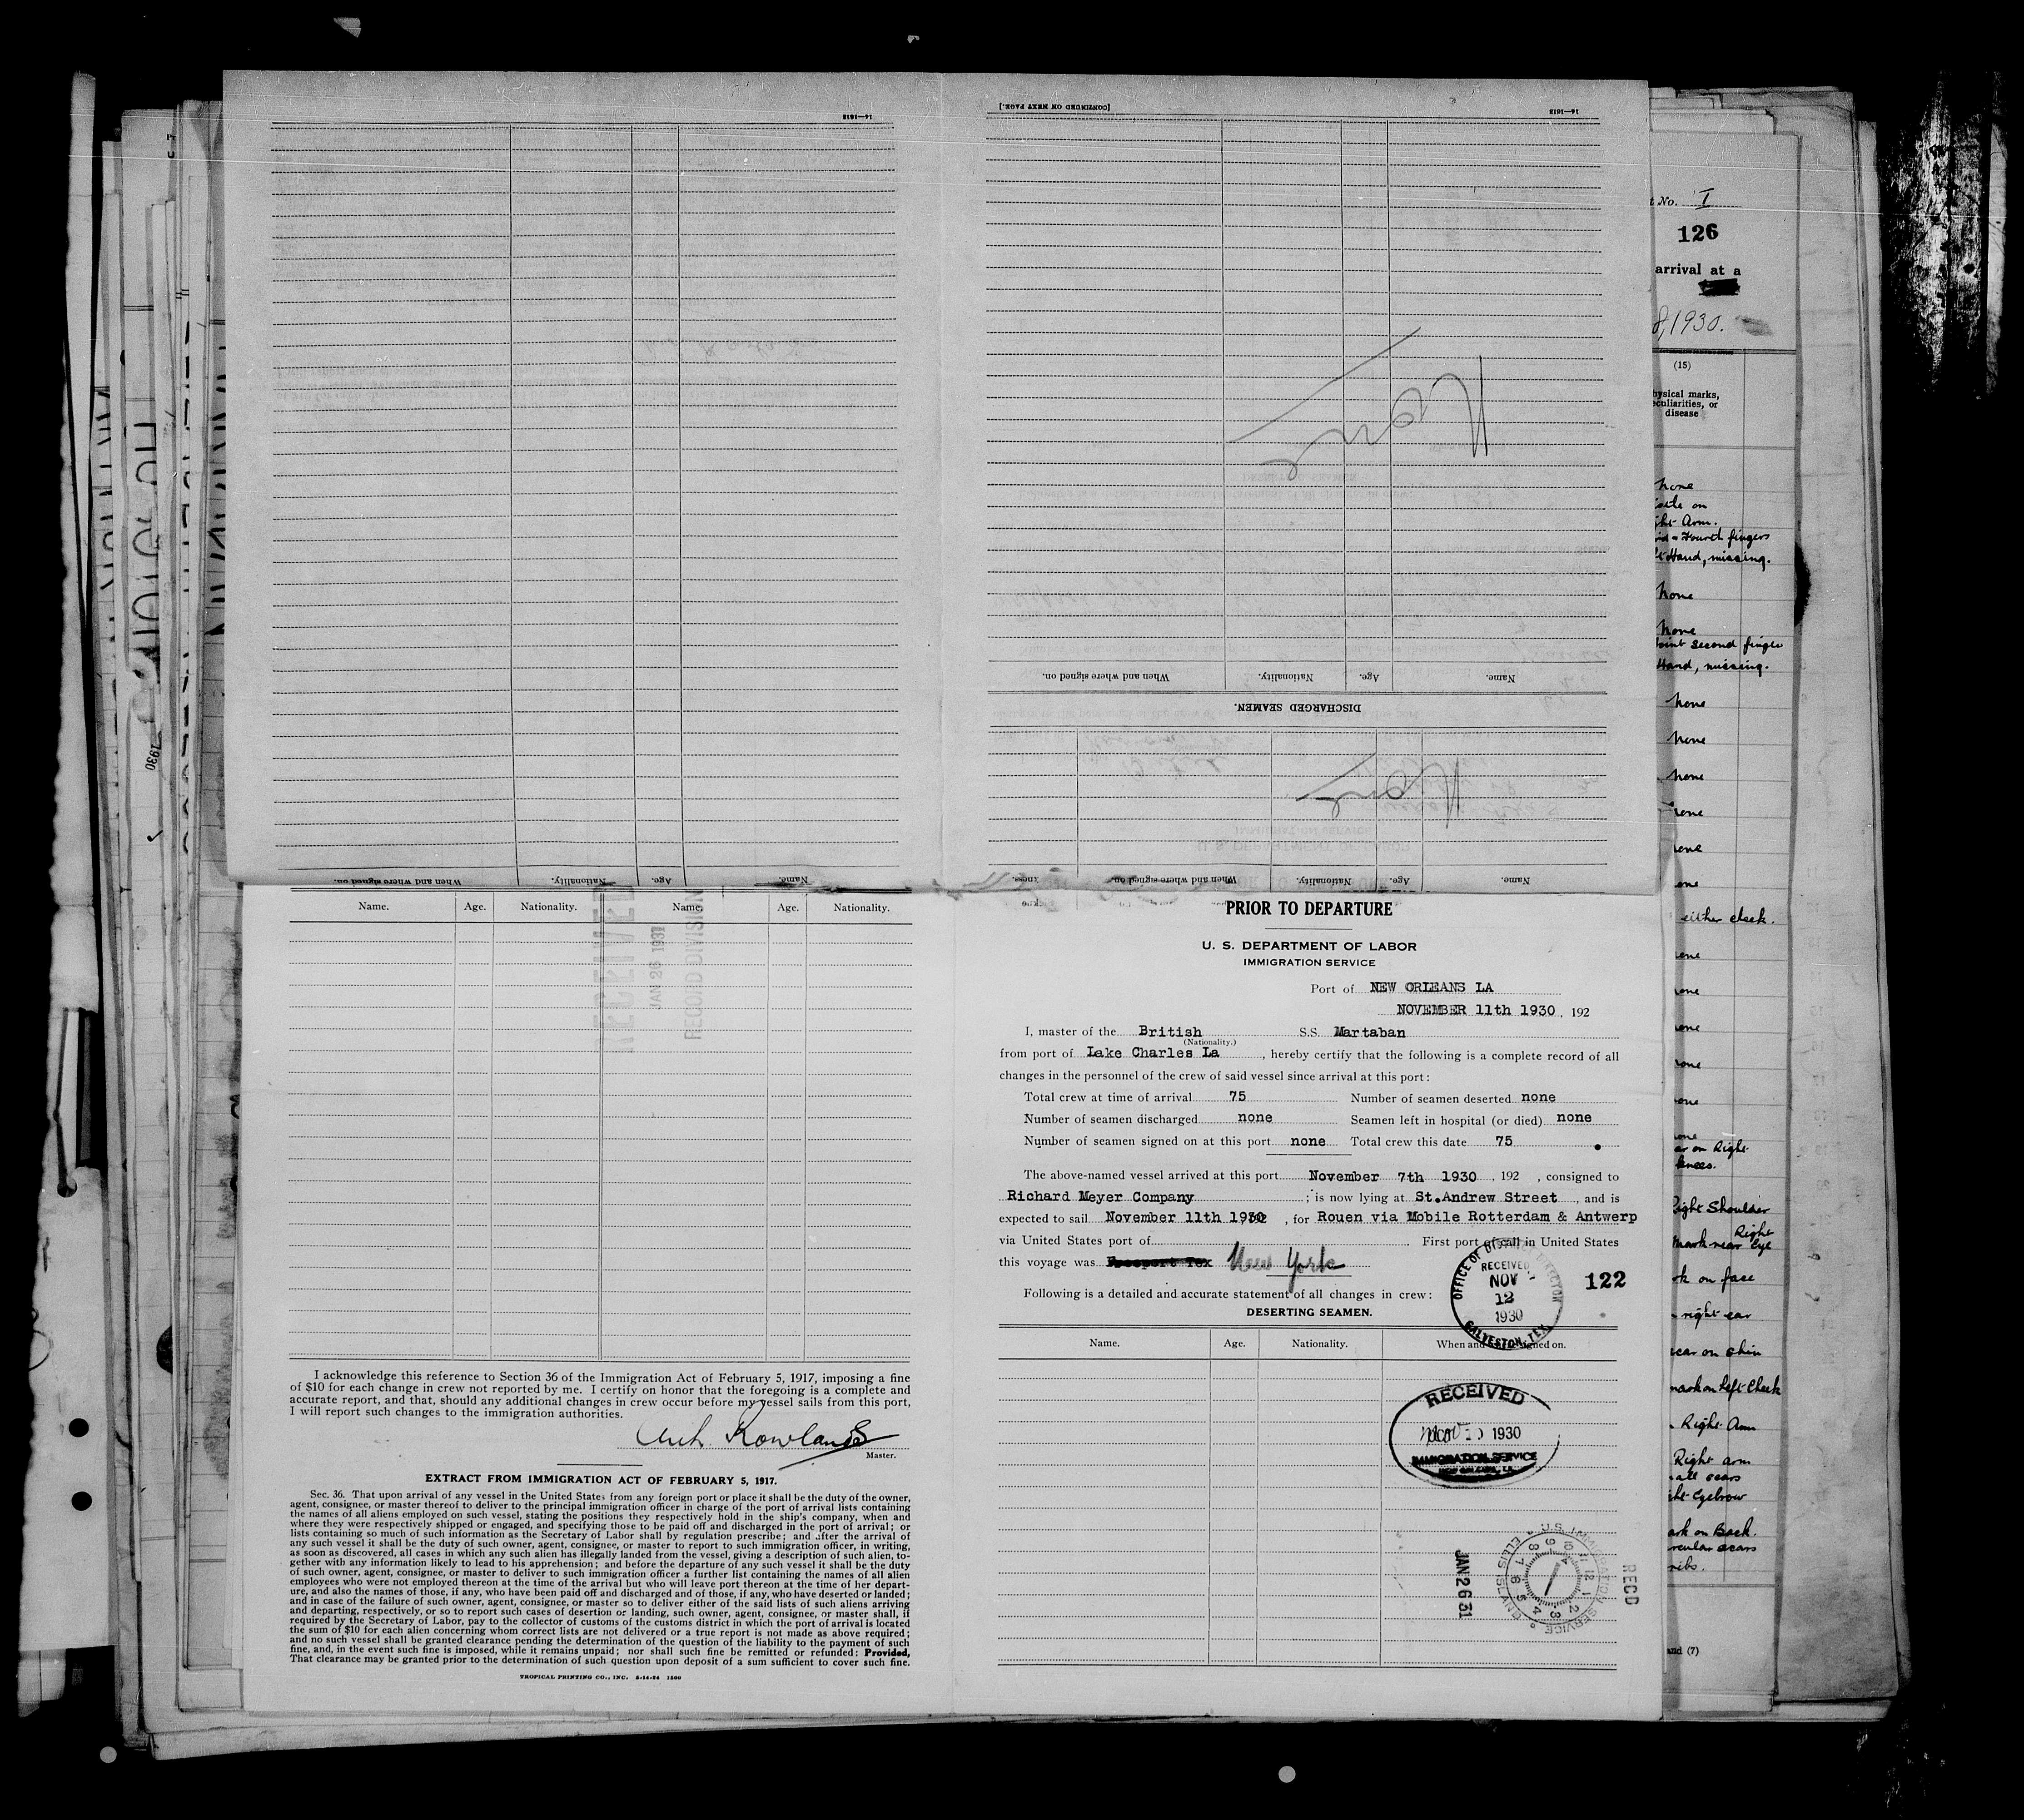 [CONTINUED ON NEXT PAGE.]
14—1618
14—1618
None
Name.
Age.
Nationality.
When and where signed on.
DISCHARGED SEAMEN.
None
Name.
Age.
Nationality.
When and where signed on.
Name.
Age.
Nationality.
When and where signed on.
Name.
Age.
Nationality.
Name.
Age.
Nationality.
RECEIVED
JAN 26 1931
RECORD DIVISION
I acknowledge this reference to Section 36 of the Immigration Act of February 5, 1917, imposing a fine
of $10 for each change in crew not reported by me. I certify on honor that the foregoing is a complete and
accurate report, and that, should any additional changes in crew occur before my vessel sails from this port,
I will report such changes to the immigration authorities.
Rowlands
Master.
EXTRACT FROM IMMIGRATION ACT OF FEBRUARY 5, 1917.
Sec. 36. That upon arrival of any vessel in the United States from any foreign port or place it shall be the duty of the owner,
agent, consignee, or master thereof to deliver to the principal immigration officer in charge of the port of arrival lists containing
the names of all aliens employed on such vessel, stating the positions they respectively hold in the ship's company, when and
where they were respectively shipped or engaged, and specifying those to be paid off and discharged in the port of arrival; or
lists containing so much of such information as the Secretary of Labor shall by regulation prescribe; and after the arrival of
any such vessel it shall be the duty of such owner, agent, consignee, or master to report to such immigration officer, in writing,
as soon as discovered, all cases in which any such alien has illegally landed from the vessel, giving a description of such alien, to-
gether with any information likely to lead to his apprehension; and before the departure of any such vessel it shall be the duty
of such owner, agent, consignee, or master to deliver to such immigration officer a further list containing the names of all alien
employees who were not employed thereon at the time of the arrival but who will leave port thereon at the time of her depart-
ure, and also the names of those, if any, who have been paid off and discharged and of those, if any, who have deserted or landed;
and in case of the failure of such owner, agent, consignee, or master so to deliver either of the said lists of such aliens arriving
and departing, respectively, or so to report such cases of desertion or landing, such owner, agent, consignee, or master shall, if
required by the Secretary of Labor, pay to the collector of customs of the customs district in which the port of arrival is located
the sum of $10 for each alien concerning whom correct lists are not delivered or a true report is not made as above required;
and no such vessel shall be granted clearance pending the determination of the question of the liability to the payment of such
fine, and, in the event such fine is imposed, while it remains unpaid; nor shall such fine be remitted or refunded: Provided,
That clearance may be granted prior to the determination of such question upon deposit of a sum sufficient to cover such fine.
TROPICAL PRINTING CO., INC. 5-14-24 1500
PRIOR TO DEPARTURE
U. S. DEPARTMENT OF LABOR
IMMIGRATION SERVICE
Port of NEW ORLEANS LA
NOVEMBER 11th 1930, 192
I, master of the British S.S. Martaban
(Nationality.)
from port of Lake Charles La, hereby certify that the following is a complete record of all
changes in the personnel of the crew of said vessel since arrival at this port:
Total crew at time of arrival 75 Number of seamen deserted none
Number of seamen discharged none Seamen left in hospital (or died) none
Number of seamen signed on at this port none Total crew this date 75
The above-named vessel arrived at this port November 7th 1930, 192 , consigned to
Richard Meyer Company ; is now lying at St.Andrew Street, and is
expected to sail November 11th 1930, for Rouen via Mobile Rotterdam & Antwerp
via United States port of First port of call in United States
this voyage was Freeport Tex New York
Following is a detailed and accurate statement of all changes in crew:
DESERTING SEAMEN.
Name.
Age.
Nationality.
When and where signed on.
OFFICE OF DISTRICT DIRECTOR
RECEIVED
NOV
12
1930
GALVESTON, TEX.
122
RECEIVED
1930
IMMIGRATION SERVICE
REC'D
JAN 26 31
U.S. IMMIGRATION SERVICE
ELLIS ISLAND
No. I
126
arrival at a
8, 1930.
(15)
physical marks,
peculiarities, or
disease
None
on
Arm.
Fourth fingers
Hand, missing.
None
None
Joint second finger
Hand, missing.
None
None
None
None
either cheek.
on Right
knees.
Right Shoulder
Mark near Right Eye
on face
right ear
scar on shin
mark on Left Cheek
Right Arm
Right arm
small scars
Eyebrow
mark on Back.
circular scars
ribs.
and (7)
1930